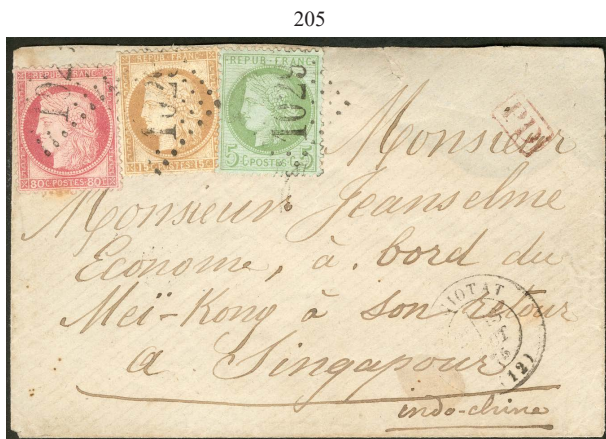 205
REPUB. FRANC.
80 C. POSTES 80 C.
REPUB. FRANC.
15 C. POSTES 15 C.
REPUB. FRANC.
5 C. POSTES 5 C.
102
1028
PD
Monsieur
Monsieur Jeanselme
Econome, à bord du
Meï-Kong à son retour
a Singapour
indo-chine
CIOTAT
(12)